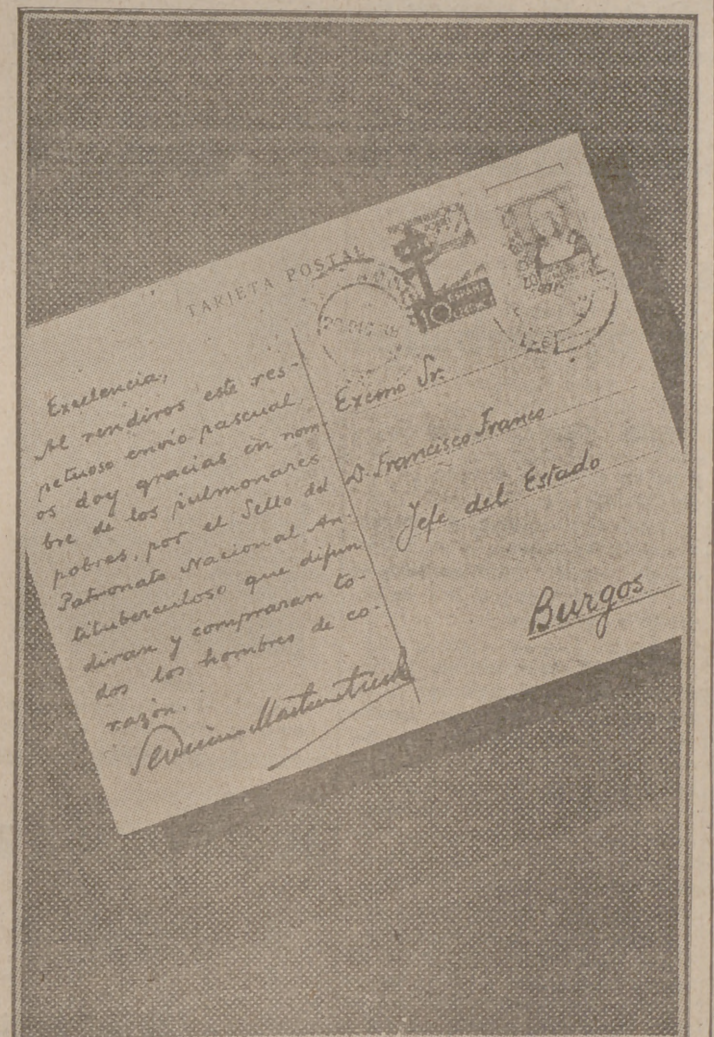 TARJETA POSTAL
ESPAÑA
10
Excelencia,
Al rendiros este res-
petuoso envío pascual,
os doy gracias en nom-
bre de los pulmonares
pobres, por el Sello del
Patronato Nacional An-
tituberculoso que difun
diran y compraran to-
dos los hombres de co-
razón.
Excmo Sr.
D. Francisco Franco
Jefe del Estado
Burgos